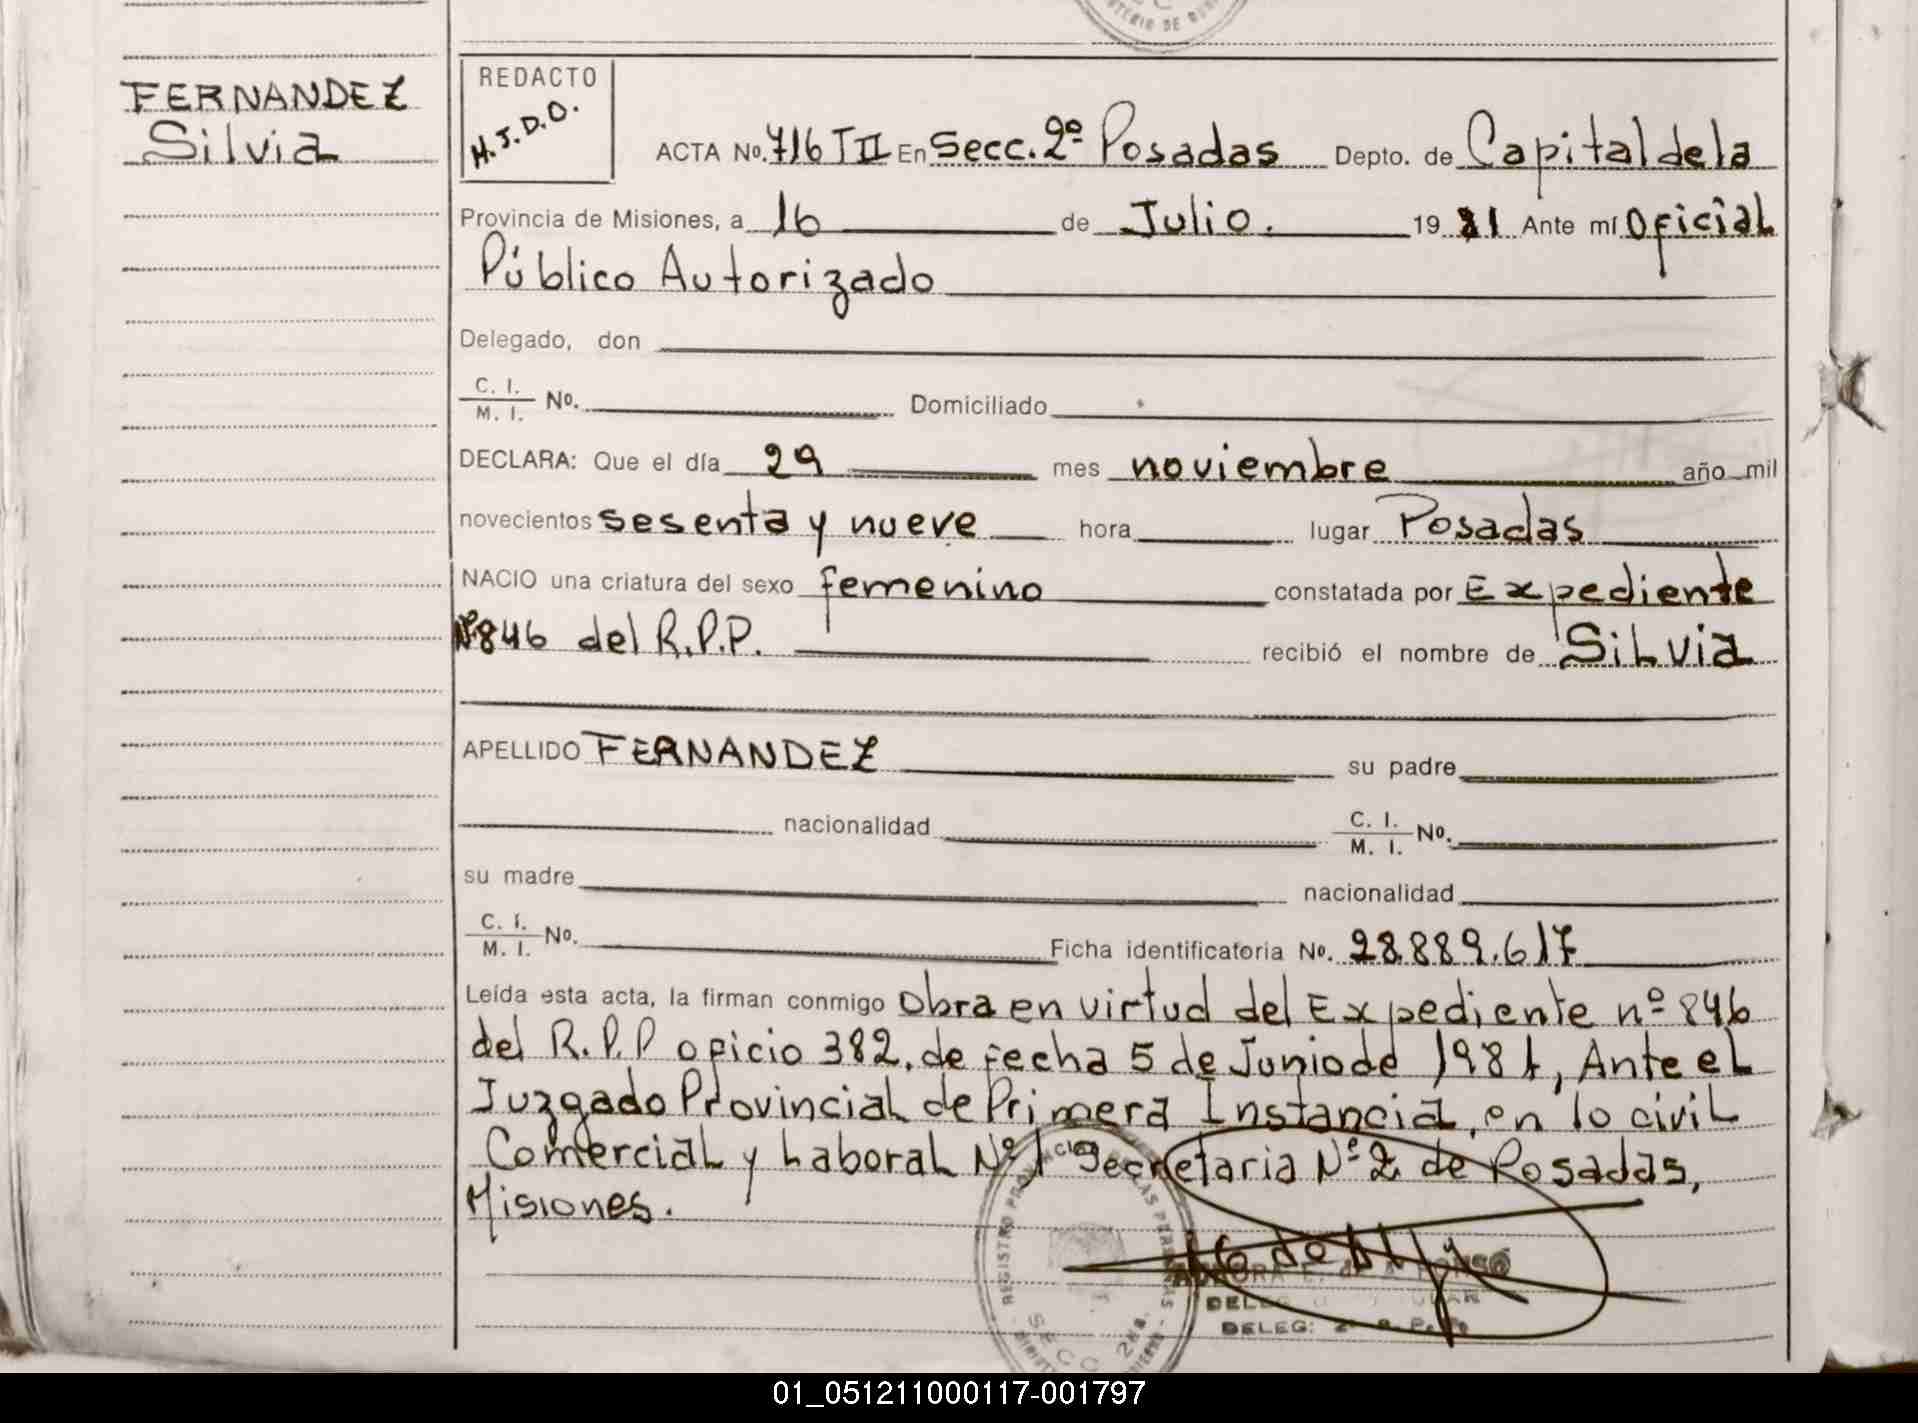 FERNANDEZ
Silvia
REDACTO
H.J.D.O.
ACTA No. 716 T II En Secc. 2º Posadas Depto. de Capital de la
Provincia de Misiones, a 16 de Julio. 1981 Ante mí Oficial
Público Autorizado
Delegado, don
C. I.
M. I. No. Domiciliado
DECLARA: Que el día 29 mes noviembre año mil
novecientos sesenta y nueve hora lugar Posadas
NACIO una criatura del sexo femenino constatada por Expediente
Nº 846 del R.P.P. recibió el nombre de Silvia
APELLIDO FERNANDEZ su padre
nacionalidad C. I.
M. I. No.
su madre nacionalidad
C. I.
M. I. No. Ficha identificatoria No. 28.889.617
Leída esta acta, la firman conmigo Obra en virtud del Expediente nº 846
del R.P.P oficio 382, de fecha 5 de Junio de 1981, Ante el
Juzgado Provincial de Primera Instancia, en lo civil
Comercial y Laboral Nº 1 Secretaria Nº 2 de Posadas,
Misiones.
REGISTRO PROVINCIAL DE LAS PERSONAS
SECC 2da.
DELEG:
01_051211000117-001797